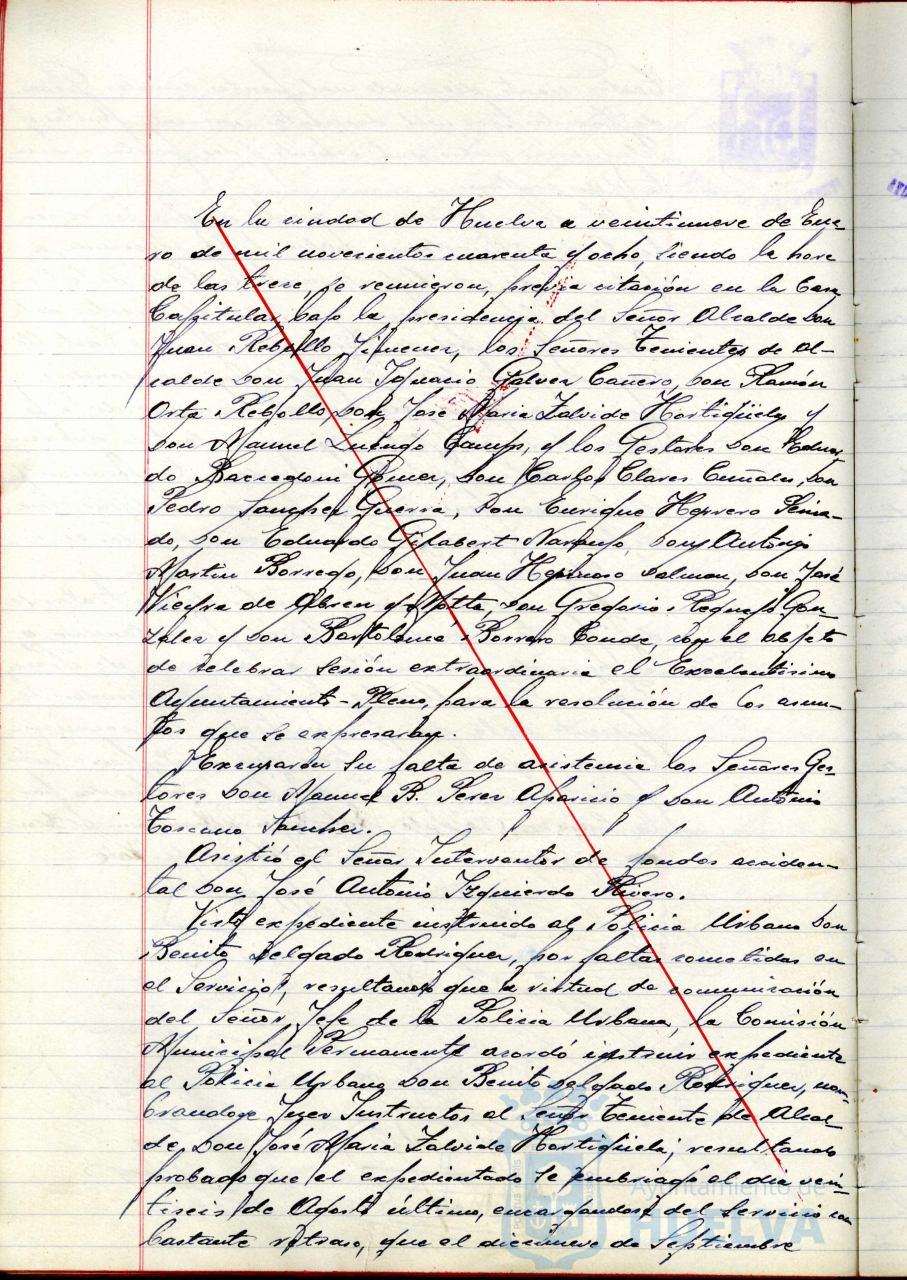 En la ciudad de Huelva a veintinueve de Ene-
ro de mil novecientos cuarenta y ocho, siendo la hora
de las trece, se reunieron, previa citación en la Casa
Capitular bajo la presidencia del Señor Alcalde Don
Juan Rebollo Jimenez, los Señores Tenientes de Al-
calde Don Juan Ignacio Galvez Cañero, Don Ramón
Orta Rebollo, Don José Maria Zalvide Hortigüela y
Don Manuel Luengo Camps, y los Gestores Don Eduar-
do Baccedoni Gómez, Don Carlos Clares Don
Pedro Sanchez Guerra, Don Enrique Herrero Peina-
do, Don Eduardo Gilabert Naranjo, Don Antonio
Martin Borrego, Don Juan Hermoso Salmon, Don José
Vieyra de Abreu y Motta, Don Gregorio Requejo Gon
zalez y Don Bartolomé Borrero Conde, con el objeto
de celebrar sesión extraordinaria el Excelentisimo
Ayuntamiento-Pleno, para la resolución de los asun-
tos que se expresaran.
Excusaron su falta de asistencia los Señores Ges-
tores Don Manuel B. Perez Aparicio y Don Antonio
Toscano Sanchez.
Asistió el Señor Interventor de fondos acciden-
tal Don José Antonio Izquierdo Rivero.
Visto expediente instruido al Policia Urbano Don
Benito Delgado Rodriguez, por faltas cometidas en
el Servicio, resultando que a virtud de comunicación
del Señor Jefe de la Policia Urbana, la Comisión
Municipal Permanente acordó instruir expediente
al Policia Urbano Don Benito Delgado Rodriguez, nom-
brandose Juez Instructor al Señor Teniente de Alcal
de Don José Maria Zalvide Hortigüela; resultando
probado que el expedientado se embriagó el dia vein-
tiseis de Agosto último, encargandose del Servicio con
bastante retraso, que el diecinueve de Septiembre
Ayuntamiento de
HUELVA